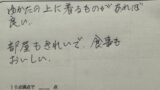 ゆかたの上に着るものがあれば
良い。
部屋もきれいで、食事も
おいしい。
10点満点で　　　点